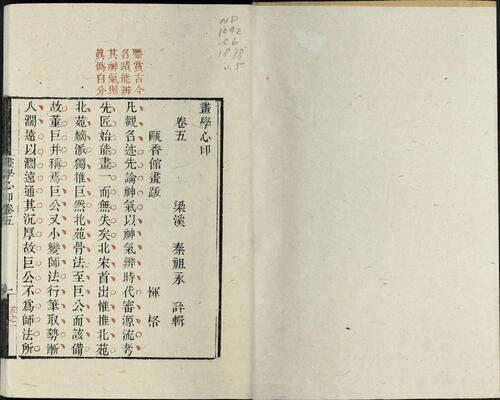 ND
1042
.C6
1878
v.5
鑒賞古今
名蹟能辨
其神氣則
眞僞自分
畫學心印
卷五
梁溪 秦祖永 評輯
甌香館畫跋 惲恪
凡觀名迹先論神氣以神氣辨時代審源流考
先匠始能畫一而無失矣北宋首出惟推北苑
北苑嫡派獨推巨然北苑骨法至巨公而該備
故董巨并稱焉巨公又小變師法行筆取勢漸
入濶遠以濶遠通其沉厚故巨公不爲師法所
畫學心印卷五
一